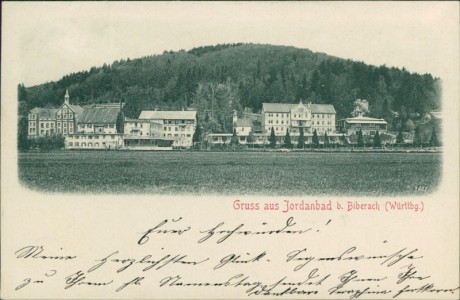 Gruss aus Jordanbad b. Biberach (Württbg.)
Euer Hochwürden!
Meine herzlichsten Glück- Segenswünsche
zu Ihrem hl. Namenstag sendet Ihnen Ihre
dankbare